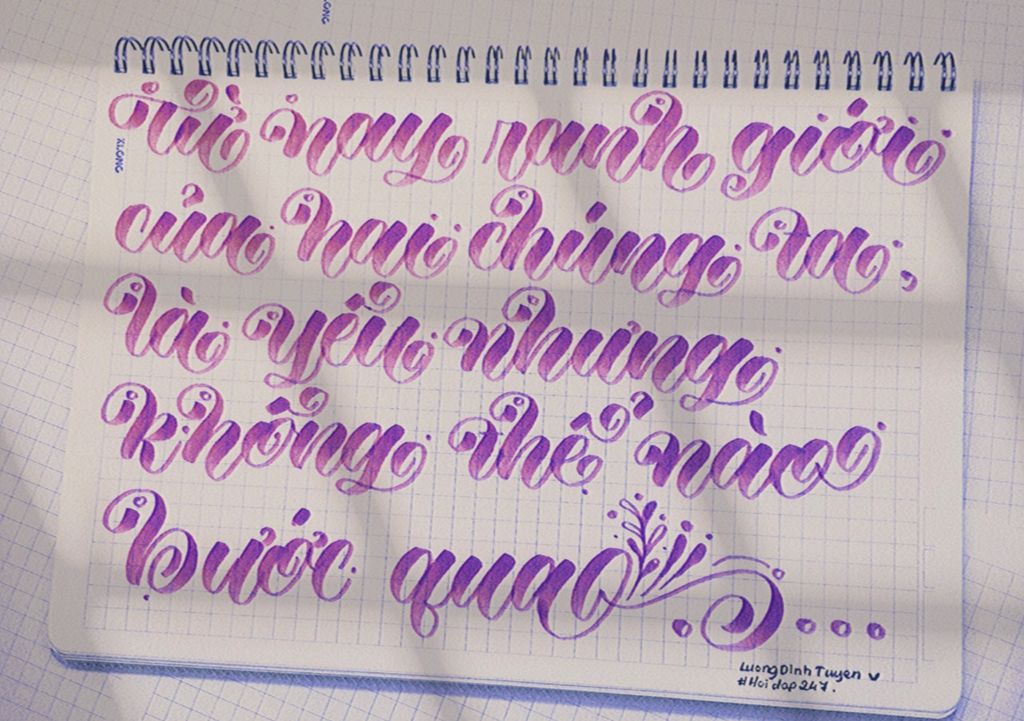 từ nay ranh giới
của hai chúng ta,
là yêu nhưng
không thể nào
bước qua...
LuongDinhTuyen
#Hoidap247.